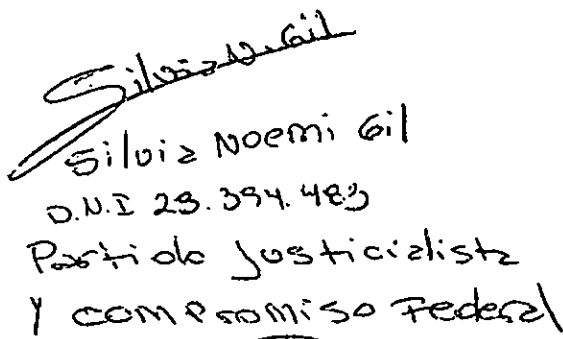 Silvia N. Gil
Silvia Noemi Gil
D.N.I 29.394.483
Partido Justicialista
Y compromiso Federal